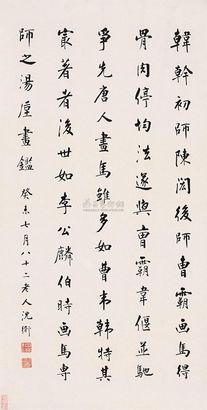 韓幹初師陳閎後師曹霸画馬得
骨肉停均法遂與曹霸韋偃並馳
爭先唐人畫馬雖多如曹韦韩特其
最著者後世如李公麟伯時画馬专
師之湯垕畫鑑
癸未七月八十二老人沈衛